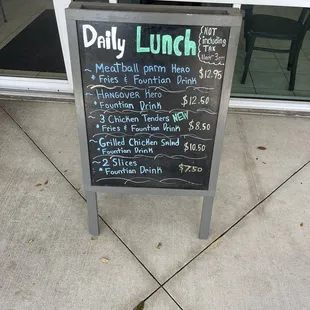 Daily Lunch
NOT
Including
TAX
~ Meatball parm Hero
* Fries & Fountain Drink $12.95
~ Hangover Hero
* Fountian Drink $12.50
~ 3 Chicken Tenders NEW
* Fries & Fountian Drink $8.50
~ Grilled Chicken Salad
* Fountian Drink $10.50
~ 2 Slices
* Fountian Drink $7.50